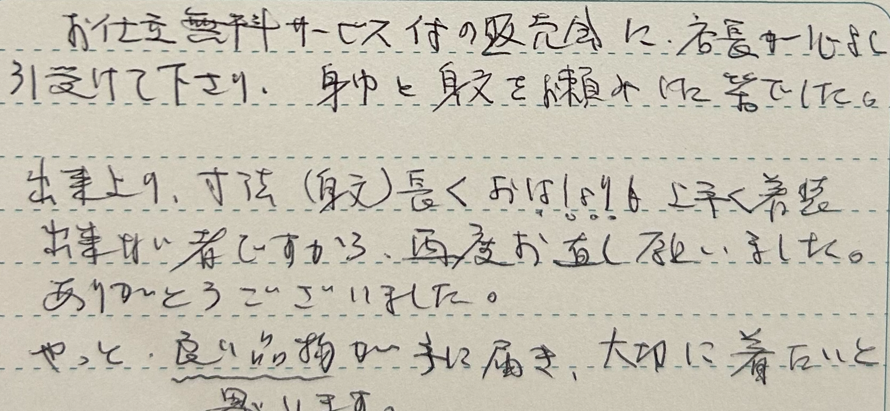 お仕立無料サービス付の販売会に、店長が心よく
引受けて下さり、身巾と身丈をお頼みした筈でした。
出来上り、寸法(身丈)長くおはしょりも上手く着装
出来ない者ですから、再度お直し願いました。
ありがとうございました。
やっと、良い品物が手に届き、大切に着たいと
思います。